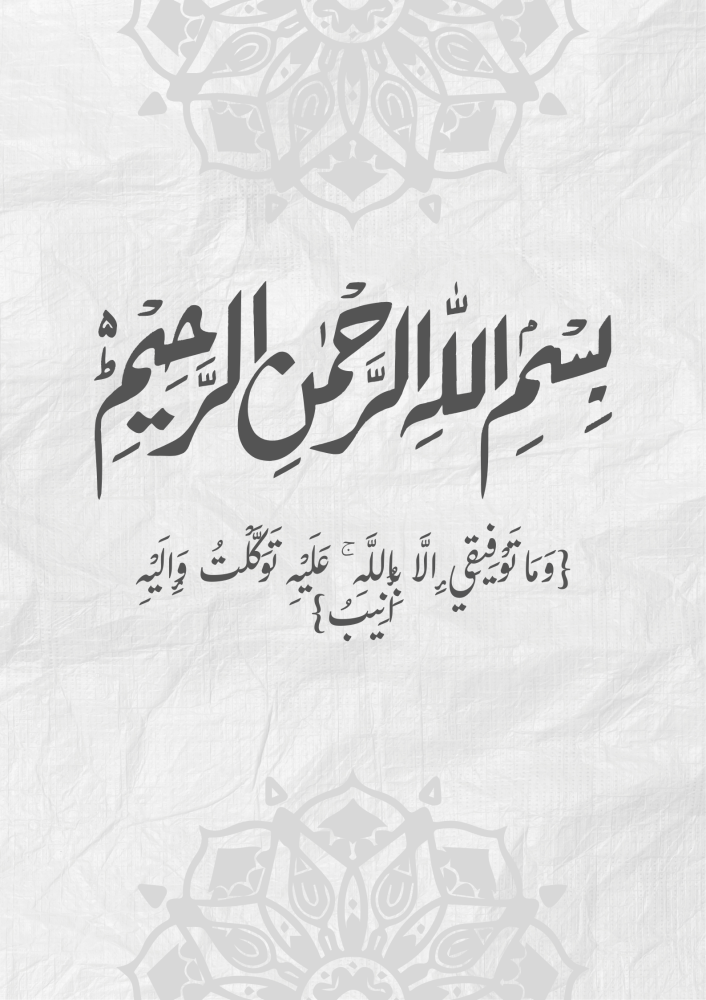 بِسْمِ اللّٰهِ الرَّحْمٰنِ الرَّحِيْمِ ط
{وَمَا تَوْفِيقِي إِلَّا بِاللَّهِ ۚ عَلَيْهِ تَوَكَّلْتُ وَإِلَيْهِ
أُنِيبُ}